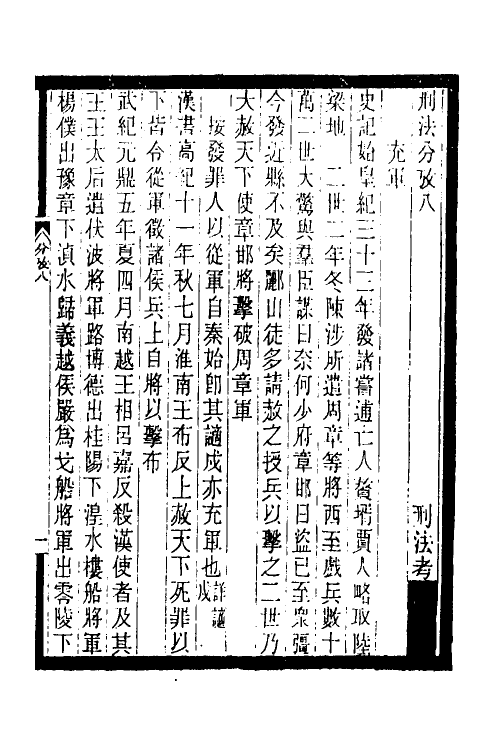 刑法分攷八　刑法考
充軍
史記始皇紀三十三年發諸嘗逋亡人贅壻賈人略取陸
梁地　二世二年冬陳涉所遣周章等將西至戲兵數十
萬二世大驚與羣臣謀曰奈何少府章邯曰盜已至衆彊
今發近縣不及矣酈山徒多請赦之授兵以擊之二世乃
大赦天下使章邯將擊破周章軍
按發罪人以從軍自秦始卽其謫戍亦充軍也詳謫戍
漢書高紀十一年秋七月淮南王布反上赦天下死罪以
下皆令從軍徵諸侯兵上自將以擊布
武紀元鼎五年夏四月南越王相呂嘉反殺漢使者及其
王王太后遣伏波將軍路博德出桂陽下湟水樓船將軍
楊僕出豫章下湞水歸義越侯嚴爲戈船將軍出零陵下
分攷八
一